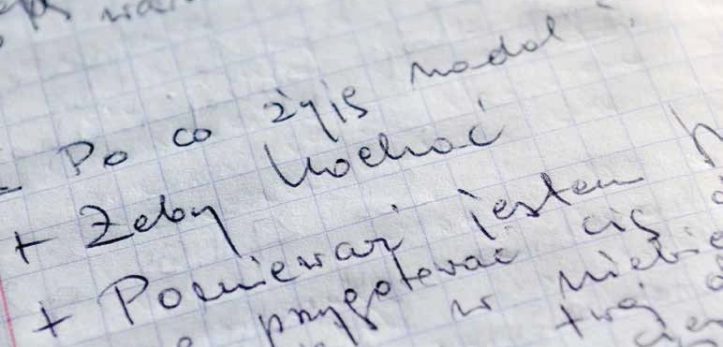 - Po co żyję nadal
+ Żeby kochać
+ Ponieważ jestem
przygotować cię
w niebie
twój